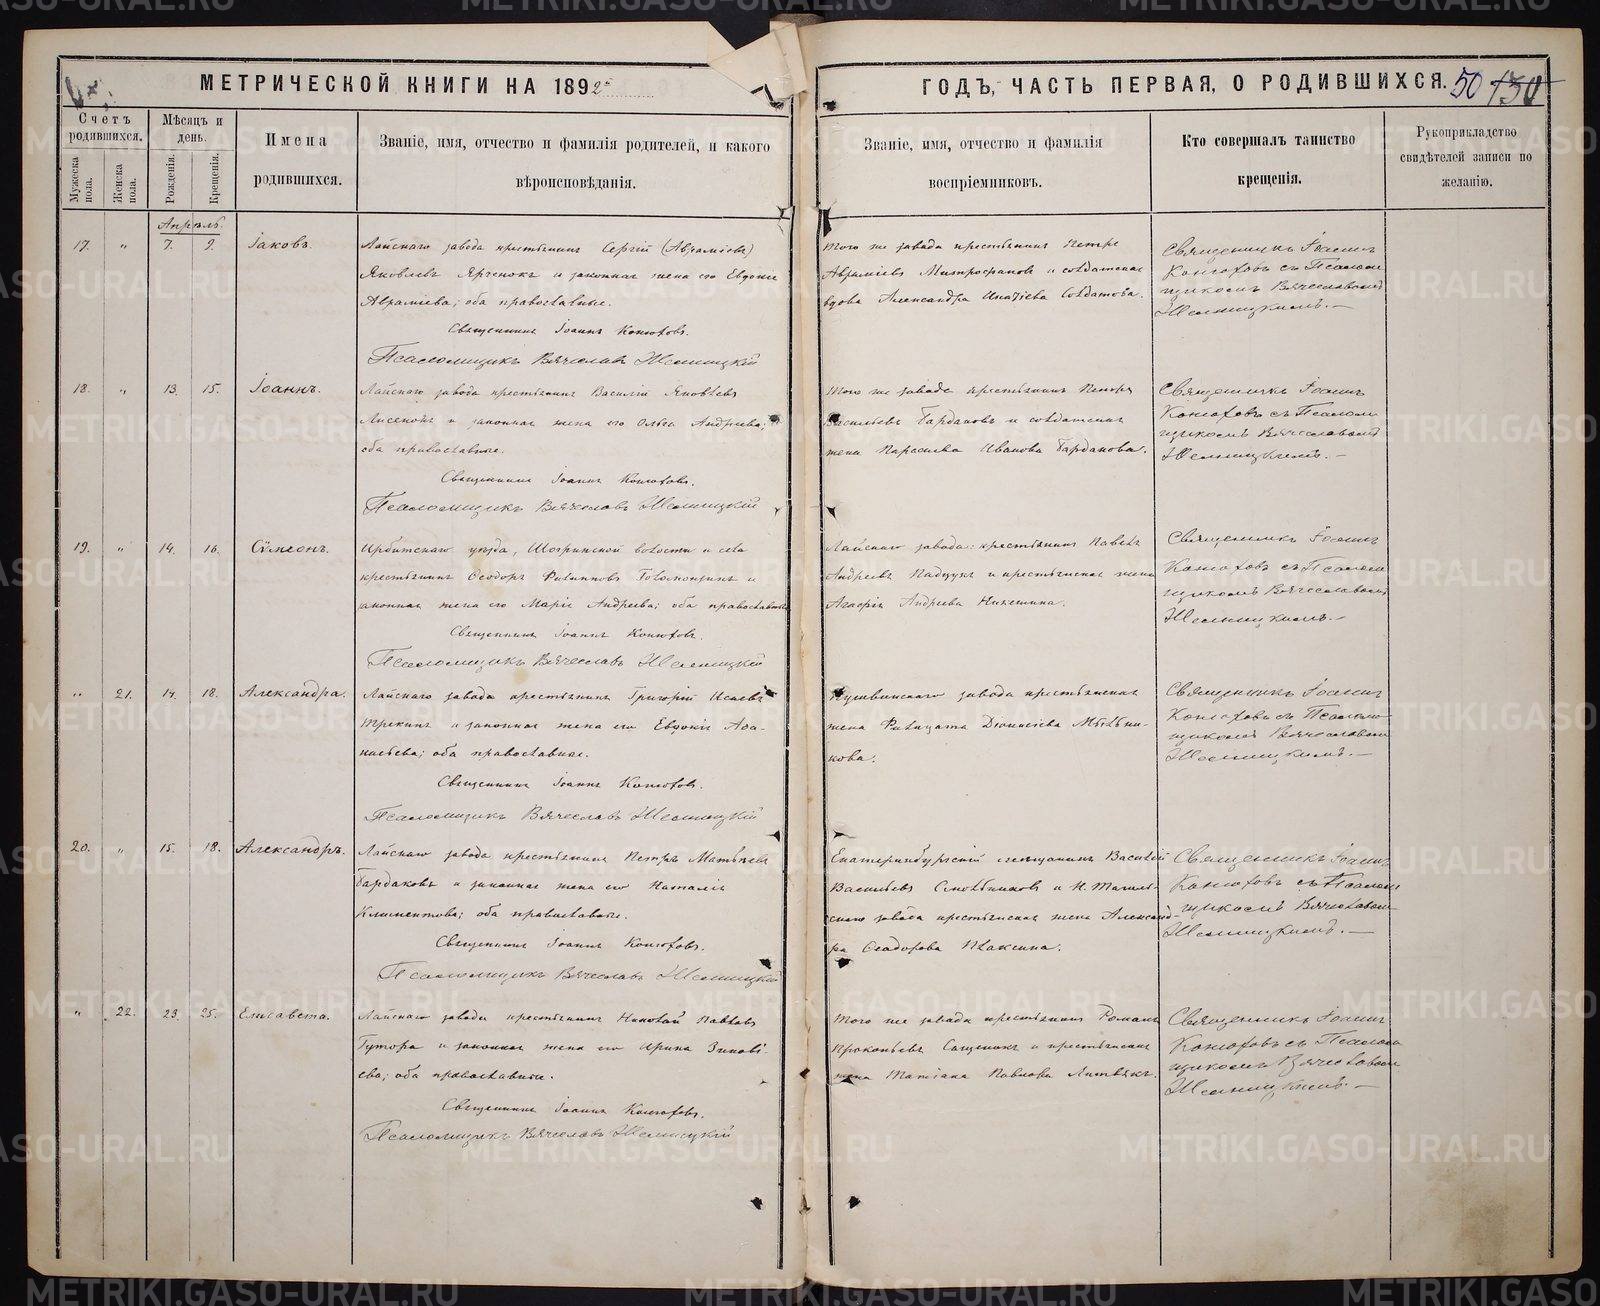 МЕТРИЧЕСКОЙ КНИГИ НА 1892
ГОДЪ, ЧАСТЬ ПЕРВАЯ, О РОДИВШИХСЯ. 50
Счетъ родившихся.
Мѣсяцъ и день.
Имена родившихся.
Званіе, имя, отчество и фамилія родителей, и какого вѣроисповѣданія.
Званіе, имя, отчество и фамилія воспріемниковъ.
Кто совершалъ таинство крещенія.
Рукоприкладство свидѣтелей записи по желанію.
Мужеска пола.
Женска пола.
Рожденія.
Крещенія.
Апрѣль.
17. " 7. 9. Іаковъ.
Лайскаго завода крестьянинъ Сергій (Авраміевъ)
Яковлевъ и законная жена его Евдокія
Авраміева; оба православные.
Священникъ Іоаннъ Конюховъ.
Псаломщикъ Вячеславъ
Того же завода крестьянинъ Петръ
Авраміевъ Митрофановъ и солдатская
вдова Александра Игнатіева Солдатова.
Священникъ Іоаннъ
Конюховъ съ Псалом
щикомъ Вячеславомъ
18. " 13. 15. Іоаннъ.
Лайскаго завода крестьянинъ Василій Яковлевъ
Лисенокъ и законная жена его Ольга Андреева;
оба православные.
Священникъ Іоаннъ Конюховъ.
Псаломщикъ Вячеславъ
Того же завода крестьянинъ Петръ
Васильевъ Бардаковъ и солдатская
жена Параскева Иванова Бардакова.
Священникъ Іоаннъ
Конюховъ съ Псалом
щикомъ Вячеславомъ
19. " 14. 16. Сѵмеонъ.
Ирбитскаго уѣзда, Шогринской волости и села
крестьянинъ Ѳеодоръ Филипповъ и
законная жена его Марія Андреева; оба православные
Священникъ Іоаннъ Конюховъ.
Псаломщикъ Вячеславъ
Лайскаго завода: крестьянинъ Павелъ
Андреевъ и крестьянская жена
Агафія Андреева Никешина.
Священникъ Іоаннъ
Конюховъ съ Псалом
щикомъ Вячеславомъ
" 21. 14. 18. Александра.
Лайскаго завода крестьянинъ Григорій Исаевъ
и законная жена его Евдокія Аѳа-
насьева; оба православные.
Священникъ Іоаннъ Конюховъ.
Псаломщикъ Вячеславъ
Кушвинскаго завода крестьянская
жена Филицата Діонисіева Мѣльни-
кова.
Священникъ Іоаннъ
Конюховъ съ Псалом
щикомъ Вячеславомъ
20. " 15. 18. Александръ.
Лайскаго завода крестьянинъ Петръ Матвѣевъ
Бардаковъ и законная жена его Наталія
Климентова; оба православные.
Священникъ Іоаннъ Конюховъ.
Псаломщикъ Вячеславъ
Екатеринбургскій мѣщанинъ Василій
Васильевъ и Н. Тагиль-
скаго завода крестьянская жена Александ-
ра Ѳеодорова Плаксина.
Священникъ Іоаннъ
Конюховъ съ Псалом
щикомъ Вячеславом
" 22. 23. 25. Елисавета.
Лайскаго завода крестьянинъ Николай Павловъ
Гутора и законная жена его Ирина Зиновi-
ева; оба православные.
Священникъ Іоаннъ Конюховъ.
Псаломщикъ Вячеславъ
Того же завода крестьянинъ Романъ
Прокопьевъ и крестьянская
жена Татіана Павлова Литвякъ.
Священникъ Іоаннъ
Конюховъ съ Псалом
щикомъ Вячеславом
METRIKI.GASO-URAL.RU